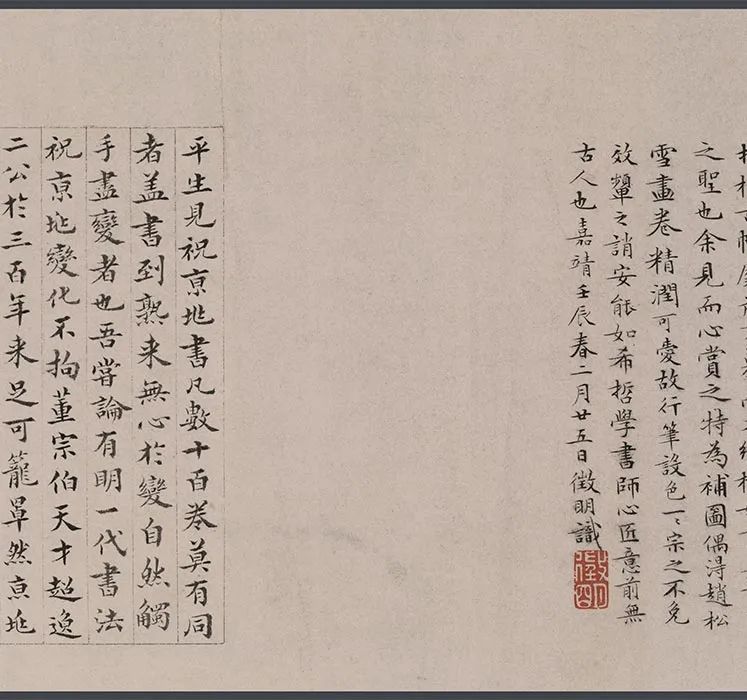 之聖也余見而心賞之特為補圖偶淂趙松
雪畫卷精潤可愛故行筆設色一〻宗之不免
效顰之誚安能如希哲學書師心匠意前無
古人也嘉靖壬辰春二月廿五日徵明識
平生見祝京兆書凡數十百卷莫有同
者蓋書到熟來無心於變自然觸
手盡變者也吾嘗論有明一代書法
祝京兆變化不拘董宗伯天才超逸
二公於三百年來足可籠罩然京兆